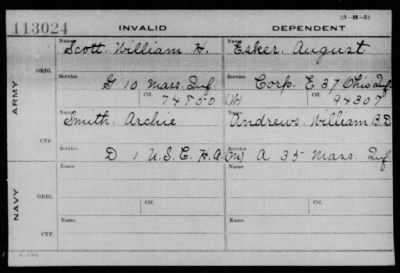 (3-H-5)
113024 INVALID DEPENDENT
Name Name
Scott, William H. Esker, August
ORIG.
Service Service
G 10 Mass. Inf. Corp. E 37 Ohio Inf.
Ctf. Ctf.
74850 94307
ARMY
Name Name
Smith, Archie Andrews, William B.D.
CTF.
Service Service
D 1 U.S.C.H.A. A 35 Mass. Inf.
Name Name
ORIG.
Service Ctf. Service Ctf.
NAVY
Name Name
CTF.